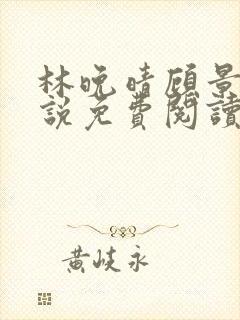 林晚晴顾景
說免費閱讀
黃岐永